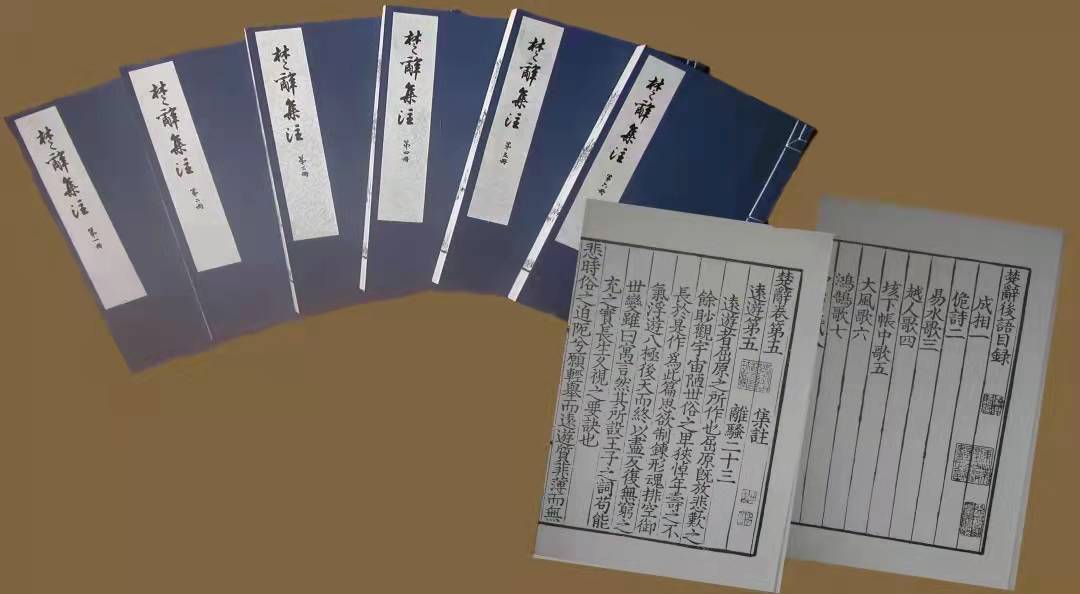 楚辭集注
第一冊
楚辭集注
第二冊
楚辭集注
第三冊
楚辭集注
第四冊
楚辭集注
第五冊
楚辭集注
第六冊
楚辭卷第五 集註
遠遊第五 離騷二十三
遠遊者屈原之所作也屈原旣放悲歎之
餘眇觀宇宙陋世俗之卑狹悼年壽之不
長於是作爲此篇思欲制鍊形魂排空御
氣浮遊八極後天而終以盡反復無窮之
世變雖曰寓言然其所設王子之詞苟能
充之實長生久視之要訣也
悲時俗之迫阨兮願輕舉而遠遊質菲薄而無
楚辭後語目録
成相一
佹詩二
易水歌三
越人歌四
垓下帳中歌五
大風歌六
鴻鵠歌七